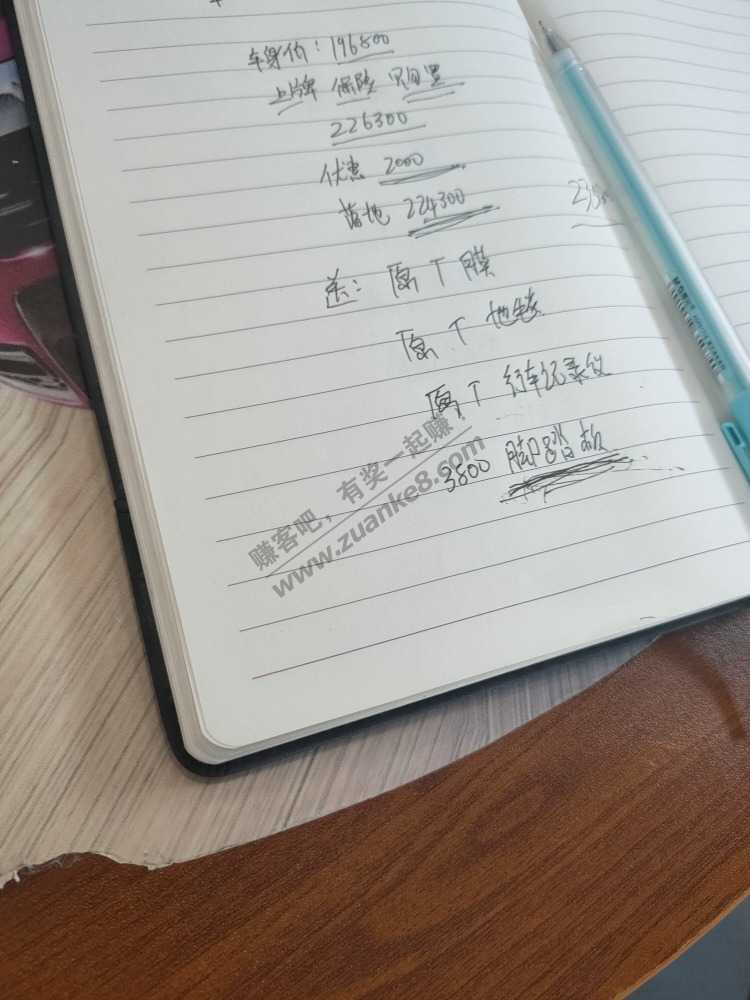 车身价：196800
上牌 保险 购置
226300
优惠 2000
落地 224300
235
送：原厂膜
原厂地毯
原厂行车记录仪
3800 脚踏板
赚客吧，有奖一起赚！
www.zuanke8.com